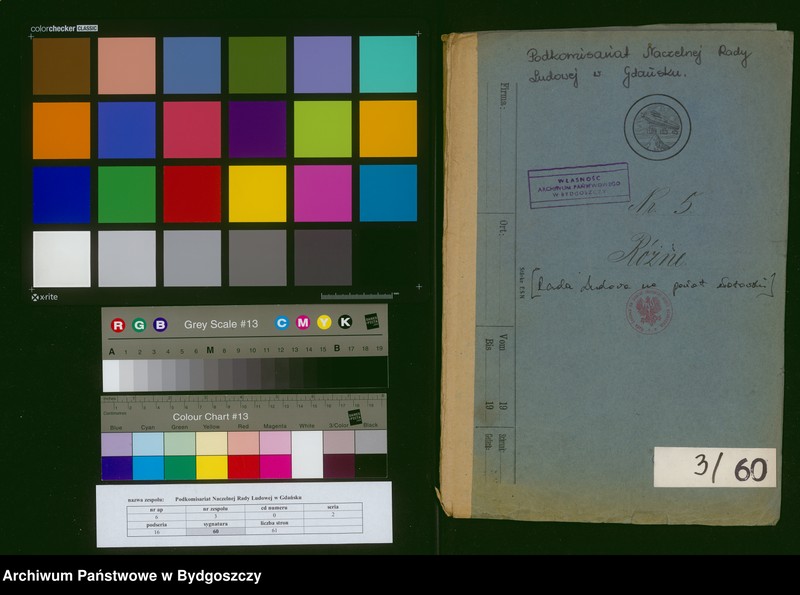 colorchecker CLASSIC
x-rite
R G B Grey Scale #13 C M Y K
A 1 2 3 4 5 6 M 8 9 10 11 12 13 14 15 B 17 18 19
Colour Chart #13
Blue Cyan Green Yellow Red Magenta White 3/Color Black
nazwa zespołu: Podkomisariat Naczelnej Rady Ludowej w Gdańsku
nr ap nr zespołu cd numeru seria
6 3 0 2
podseria sygnatura liczba stron
16 60 61
Podkomisariat Naczelnej Rady
Ludowej w Gdańsku.
Firma:
WŁASNOŚĆ
ARCHIWUM PAŃSTWOWEGO
W BYDGOSZCZY
Nr. 5
Ort:
Różne
[Rada Ludowa na powiat
Vom 19
Bis 19
3/60
Archiwum Państwowe w Bydgoszczy